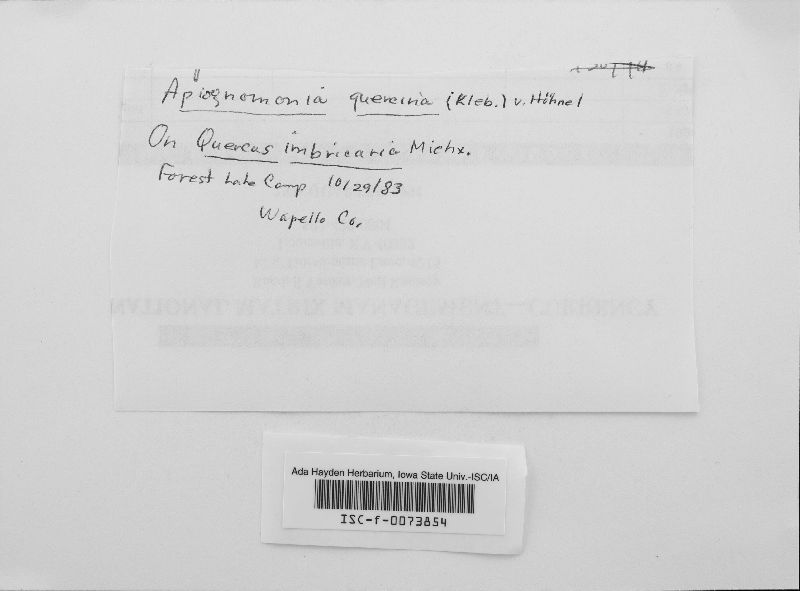 Apiognomonia quercina (Kleb.) v. Höhnel
On Quercus imbricaria Michx.
Forest Lake Camp 10/29/83
Wapello Co.
Ada Hayden Herbarium, Iowa State Univ.-ISC/IA
ISC-f-0073854